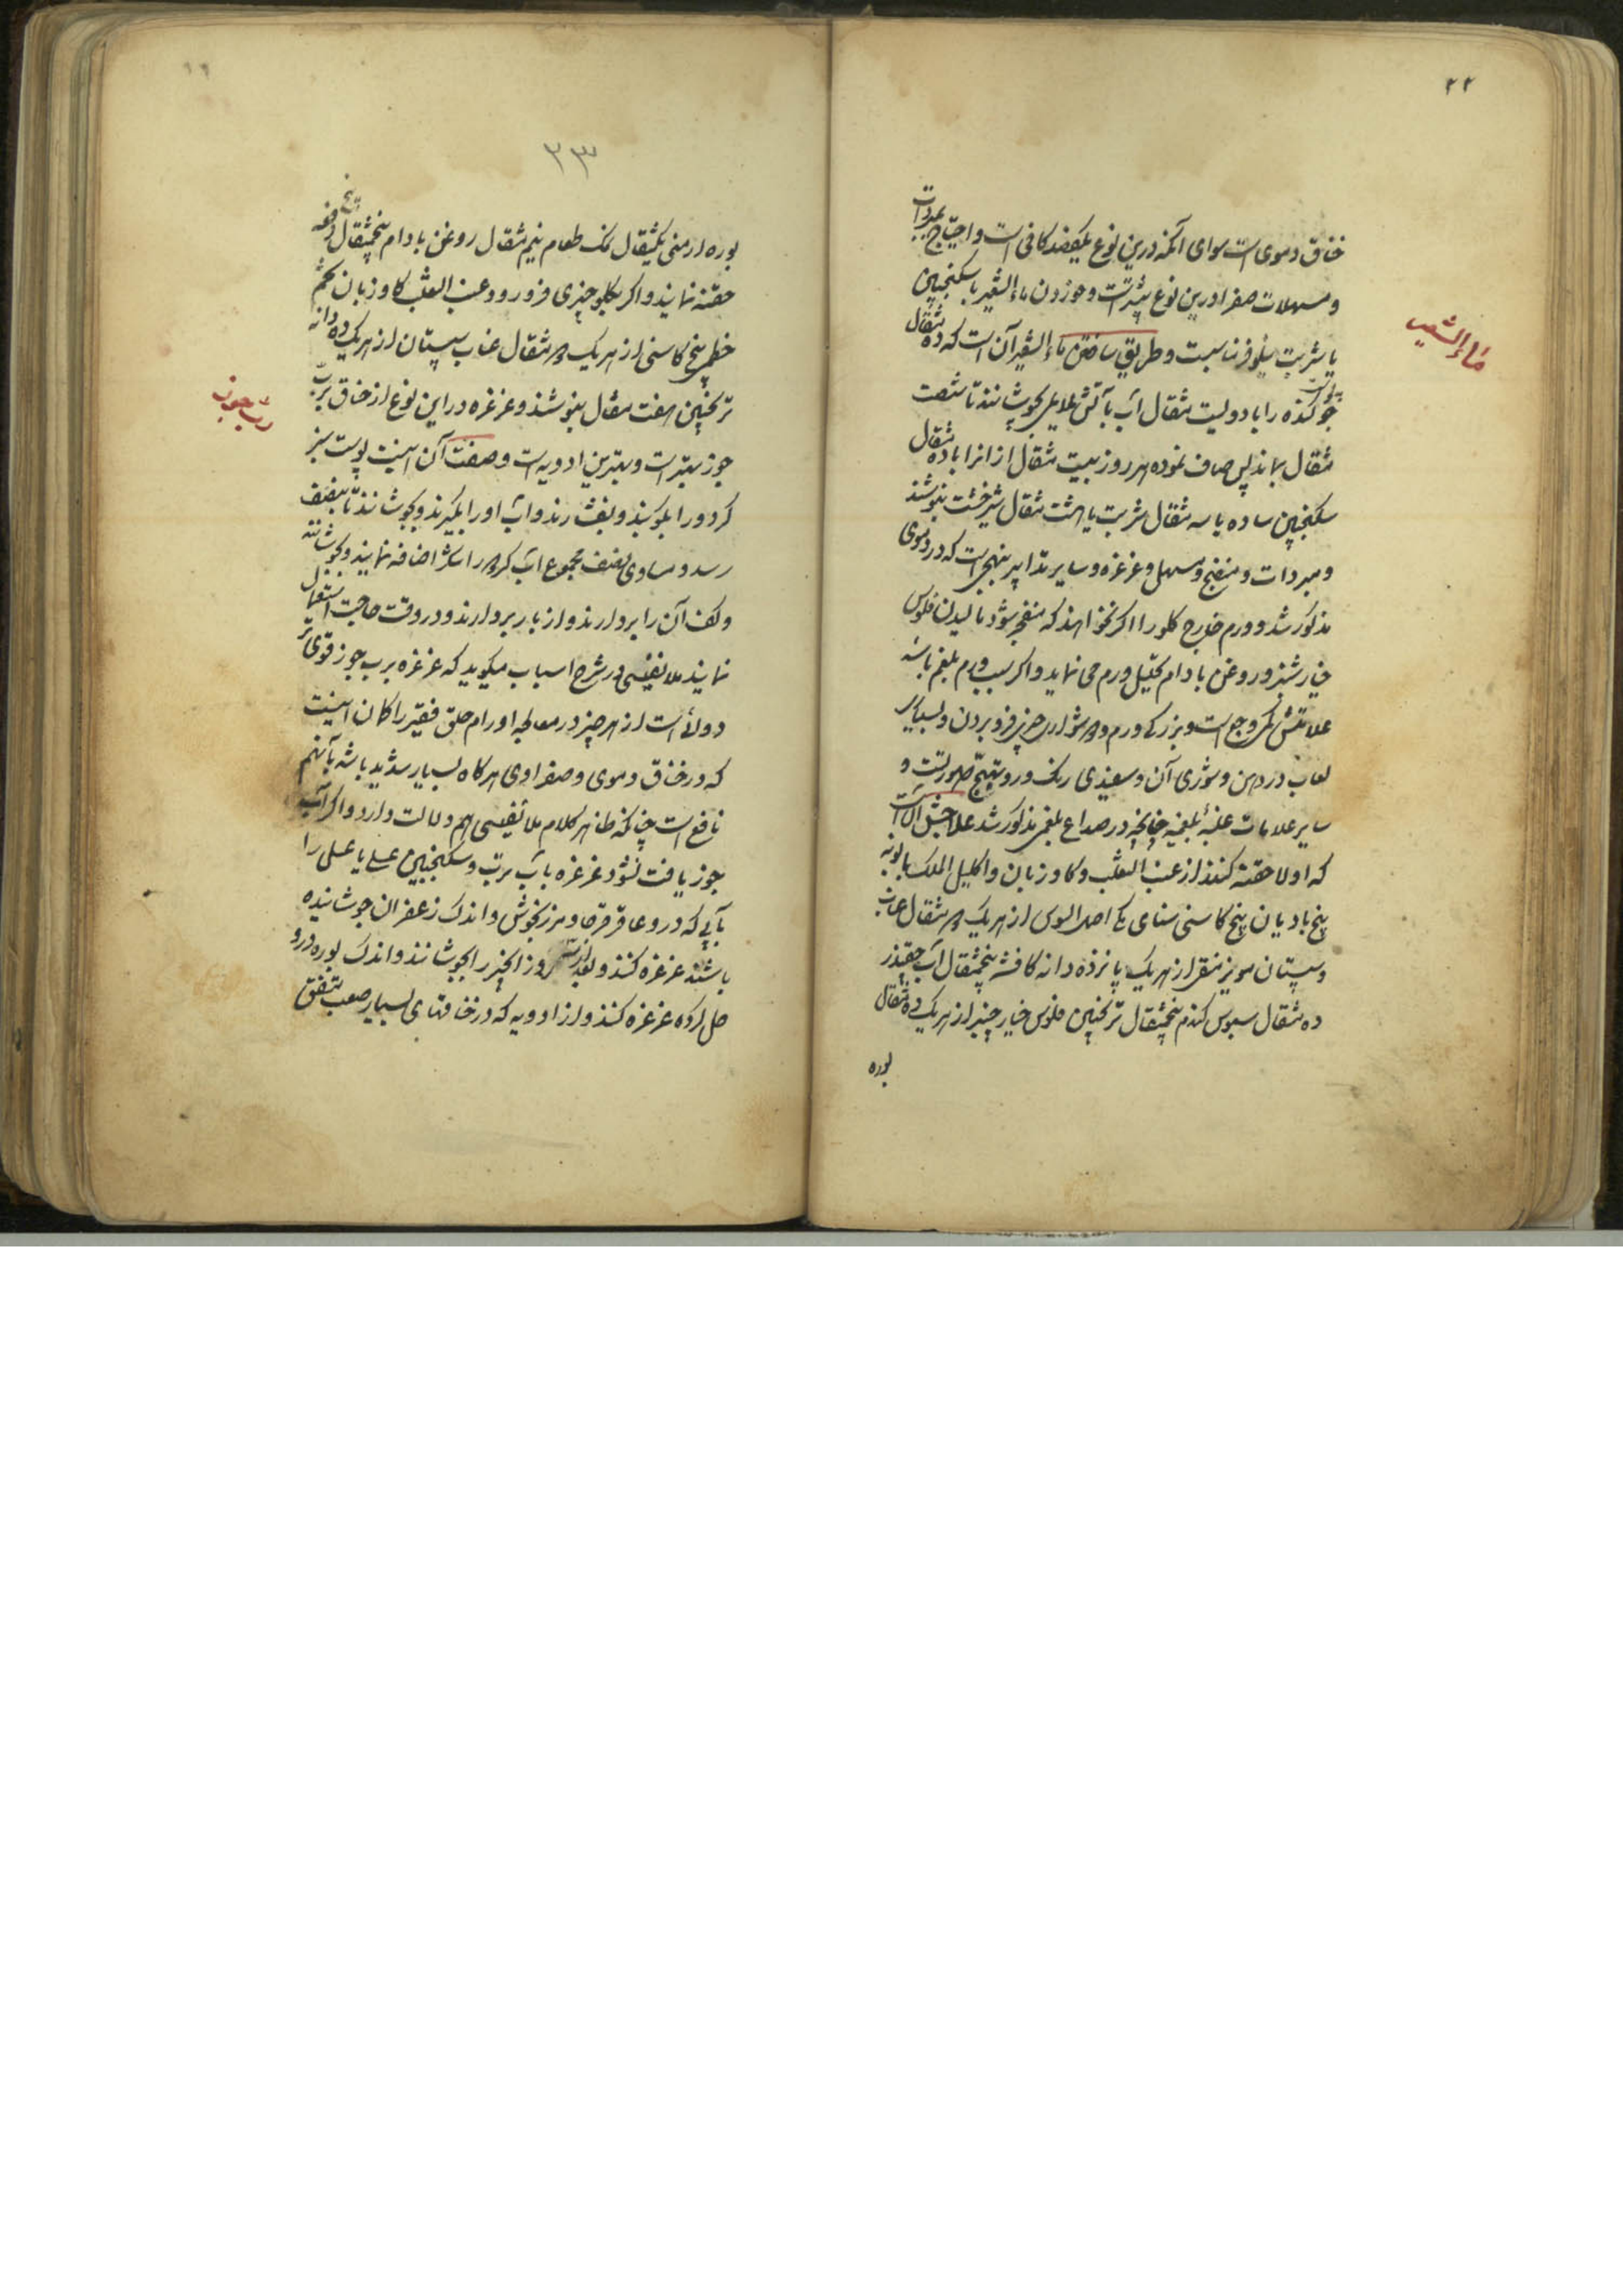 ۲۲
خناق دموی است سوای آنکه درین نوع یکفصد کافی است و احتیاج بمبردات
و مسهلات صفرا درین نوع بیشتر است و خوردن ماء الشعیر با سکنجبین
یا شربت نیلوفر مناسبت و طریق ساختن ماء الشعیر آن است که ده مثقال
جو کنده را با دویست مثقال آب بآتش ملایم بجوشانند تا شصت
مثقال بماند پس صاف نموده هر روز بیست مثقال از انرا با ده مثقال
سکنجبین ساده یا سه مثقال شربت یا هشت مثقال شیرخشت بنوشند
و مبردات و منضج و مسهل و غرغره و سایر تدابیر بنهجی است که در دموی
مذکور شد و ورم خارج کلو را اکر نخواهند که منفجر شود مالیدن فلوس
خیار شنبر و روغن بادام تحلیل ورم می نماید و اکر سبب ورم بلغم باشد
علامتش کمی وجع است و بزرکی ورم و دشواری چیزی فرو بردن و بسیاری
لعاب در دهن و شوری آن و سفیدی رنک و رو و تهبج صورتست و
سایر علامات غلبهٔ بلغم چنانچه در صداع بلغمی مذکور شد علاجش آنست
که اولا حقنه کنند از عنب الثعلب و کاوزبان و اکلیل الملک بابونه
بیخ بادیان بیخ کاسنی سنای مکی اصل السوس از هر یک دو مثقال عناب
و سپستان مویز منقی از هر یک پانزده دانه کافشه پنجمثقال آب چقندر
ده مثقال سبوس کندم پنجمثقال ترنجبین فلوس خیار چنبر از هر یک ده مثقال
بوره
ماء الشعیر
۳۳
بوره ارمنی یکمثقال نمک طعام نیم مثقال روغن بادام پنجمثقال دفعه
حقنه نمایند و اکر بکلو چیزی فرو رود عنب الثعلب کاوزبان تخم
خطمی بیخ کاسنی از هر یک دو مثقال عناب سپستان از هر یک ده دانه
ترنجبین هفت مثقال بنوشند و غرغره در این نوع از خناق برب
جوز بهتر است و بهترین ادویه است و صفت آن اینست پوست سبز
کردو را بکوبند و بفشارند و آب او را بکیرند و بجوشانند تا بنصف
رسد و مساوی نصف مجموع آب کرده را شکر اضافه نمایند و بجوشانند
و کف آن را بردارند و از بار بردارند و در وقت حاجت استعمال
نمایند ملا نفیسی در شرح اسباب میکوید که غرغره برب جوز قوی تر
دوائی است از هر چیز در معالجه اورام حلق فقیر را کمان اینست
که در خناق دموی و صفراوی هر کاه بسیار شدید باشد بآنهم
نافع است چنانکه ظاهر کلام ملا نفیسی هم دلالت دارد و اکر آب
جوز یافت نشود غرغره باب برتب و سکنجبین عسلی یا عسل را
بآبی که در و عاقرقرحا و مرزنجوش و اندک زعفران جوشانیده
باشند غرغره کنند و بعد از سه روز انجیر را بجوشانند و اندک بوره در و
حل کرده غرغره کنند و از ادویه که در خناقهای بسیار صعب متفق
رب جوز